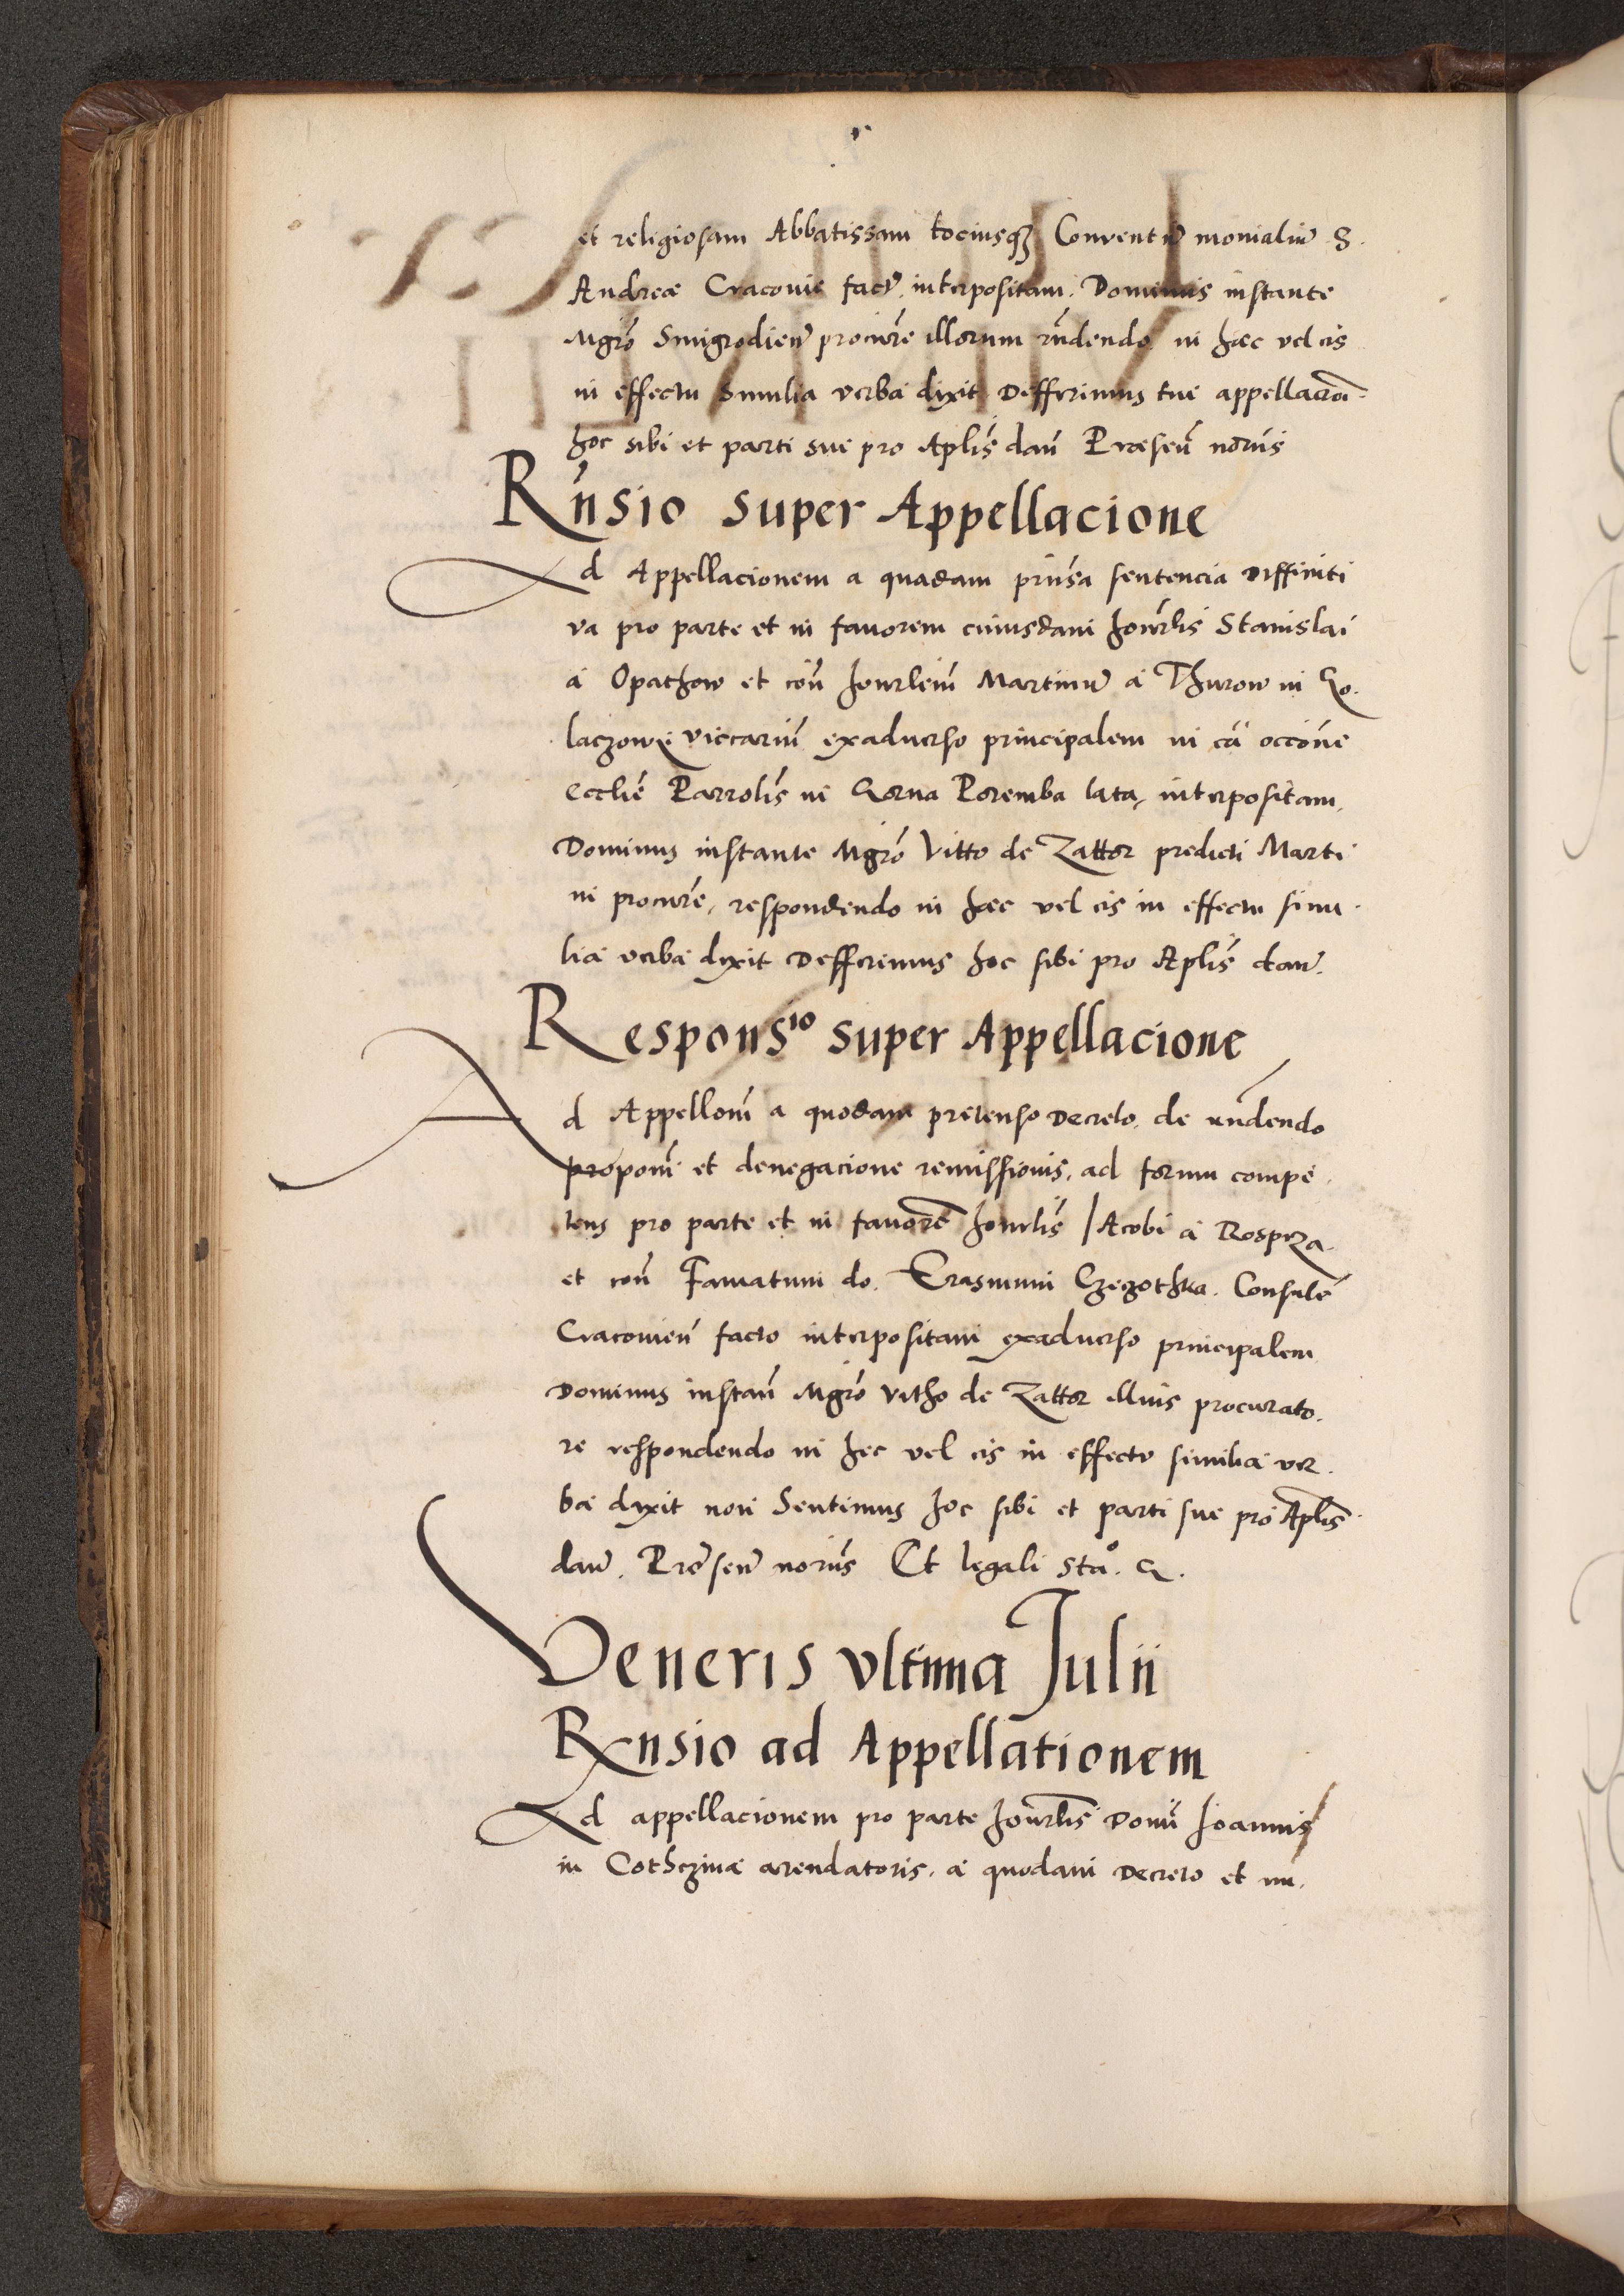 et religiosam Abbatissam tociusq₃ Conventū monialiū S.
Andreæ Cracovie factū interpositam. Dominus instante
Mgrō Smigrodień procurē illorum rn̄dendo in hæc vel eis
in effectu similia verba dixit Defferimus tue appellacōi
hoc sibi et parti sue pro Aplīs dan̄ Præsen̄ notr̄is
Rn̄sio super Appellacione
Ad Appellacionem a quadam prn̄sa sentencia Diffiniti
va pro parte et in favorem cuiusdam honr̄lis Stanislai
a Opathow et con̄ honrlem̄ Martinū a Thurow in Go.
laczowi viccariū exadverso principalem in cā occōne
Ecclīe Parrolīs in Gorna Poremba lata, interpositam,
Dominus instante Mgrō Vitto de Zattor predicti Marti
ni procurē, respondendo in hæc vel eis in effectu simi
lia verba dixit Defferimus hoc sibi pro Aplīs dan̄.
Responsio super Appellacione
Ad Appellom̄ a quodam pretenso Decreto de rn̄dendo
propom̄ et denegacione remissionis, ad forum compe
tens pro parte et in favorē honrlis̄ Iacobi a Rosprza
et con̄ Famatum do. Erasmum Czeczothka. Consulē
Cracovien̄ facto interpositam exadverso principalem
Dominus instan̄ Mgrō Vitho de Zattor illius procurato.
re respondendo in hec vel eis in effectu similia ver.
ba dixit non Sentimus hoc sibi et parti sue pro Aplīs
dan̄. Præsen̄ notr̄is Et legali sta°. &.
Veneris ultima Julii
Rnsio ad Appellationem
Ad appellacionem pro parte honr̄lis Domī Joannis
in Cothczina arendatoris. a quodam Decreto et in.